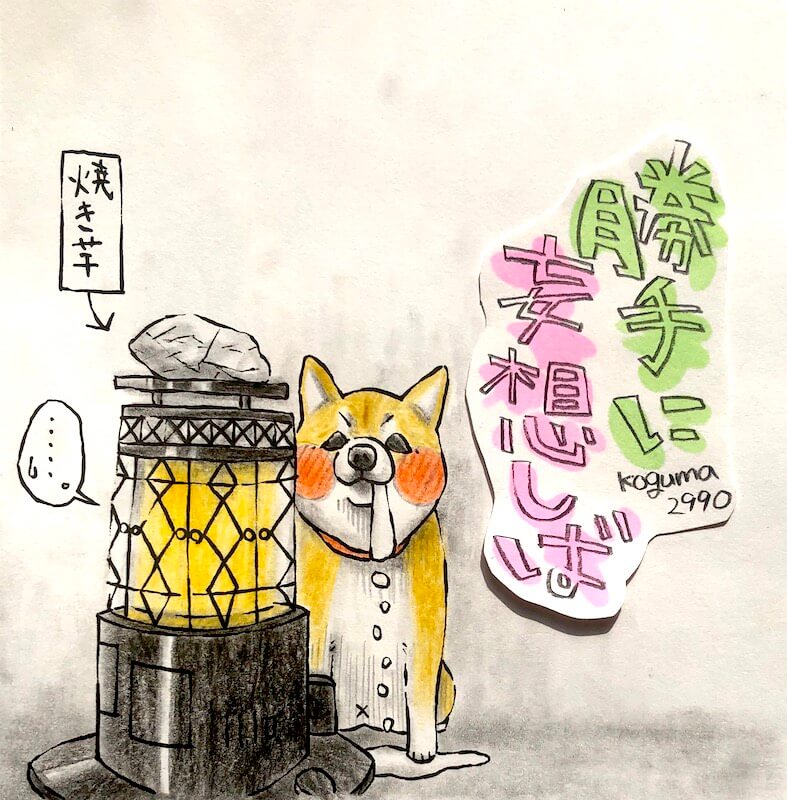 勝手に
妄想しば
koguma
2990
焼き芋
……